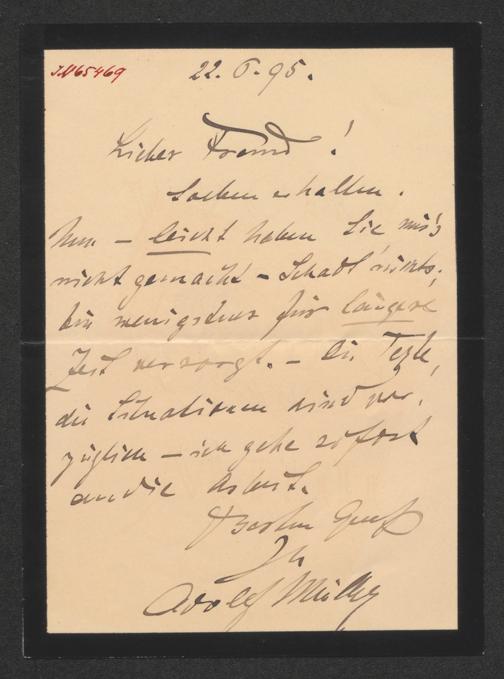 I.N 65469
22. 6. 95.
Lieber Freund!
Soeben erhalten.
Nun – leicht haben Sie mir's
nicht gemacht – Schad' nichts,
bin wenigstens für längere
Zeit versorgt. – Die Texte,
die Situationen sind vor-
züglich – ich gehe sofort
an die Arbeit.
Besten Gruß
Ihr
Adolf Müller